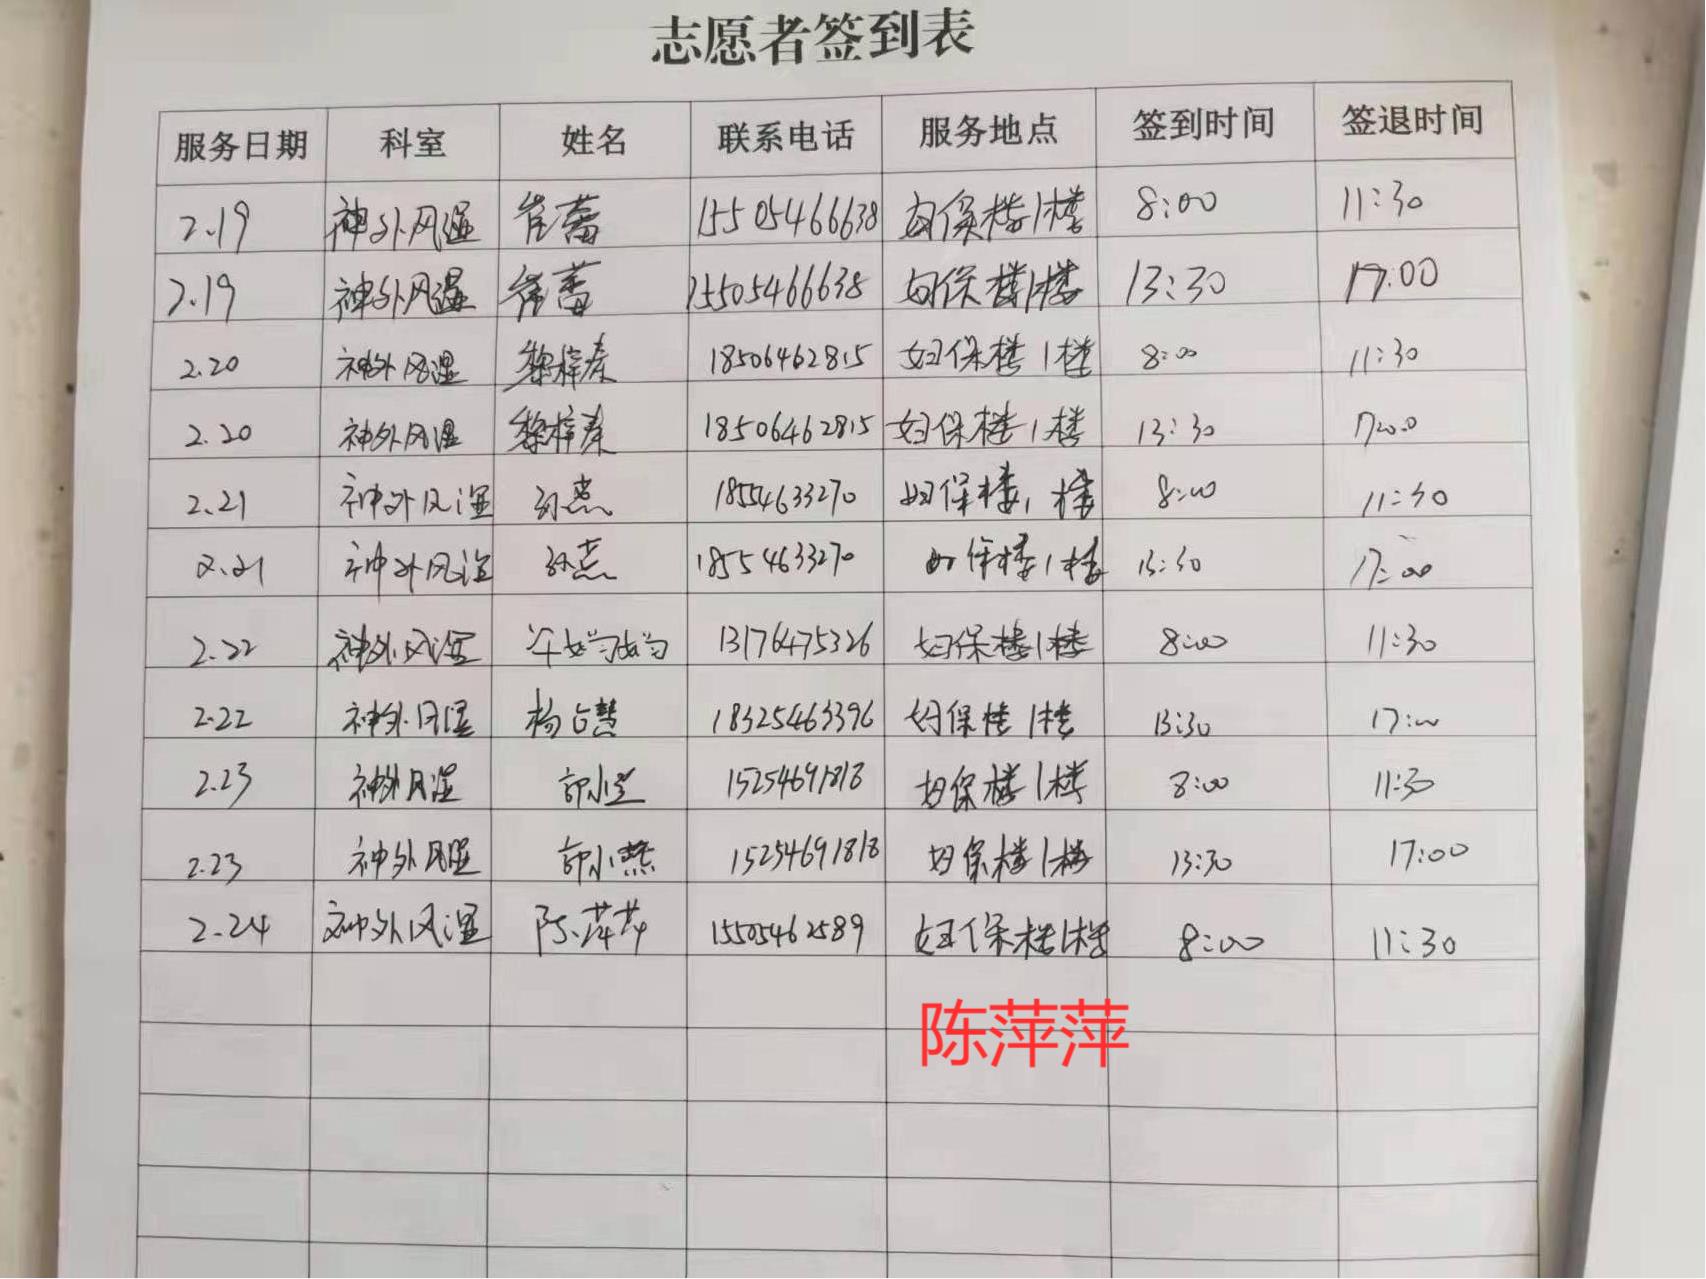 志愿者签到表
服务日期 科室 姓名 联系电话 服务地点 签到时间 签退时间
2.19 神外风湿 崔蕾 15505466638 妇保楼1楼 8:00 11:30
2.19 神外风湿 崔蕾 15505466638 妇保楼1楼 13:30 17:00
2.20 神外风湿 黎梓秦 18506462815 妇保楼1楼 8:00 11:30
2.20 神外风湿 黎梓秦 18506462815 妇保楼1楼 13:30 17:00
2.21 神外风湿 孙燕 18554633270 妇保楼1楼 8:00 11:30
2.21 神外风湿 孙燕 18554633270 妇保楼1楼 13:30 17:00
2.22 神外风湿 13176475326 妇保楼1楼 8:00 11:30
2.22 神外风湿 杨占慧 18325463396 妇保楼1楼 13:30 17:00
2.23 神外风湿 15254691818 妇保楼1楼 8:00 11:30
2.23 神外风湿 15254691818 妇保楼1楼 13:30 17:00
2.24 神外风湿 陈萍萍 15505462589 妇保楼1楼 8:00 11:30
陈萍萍